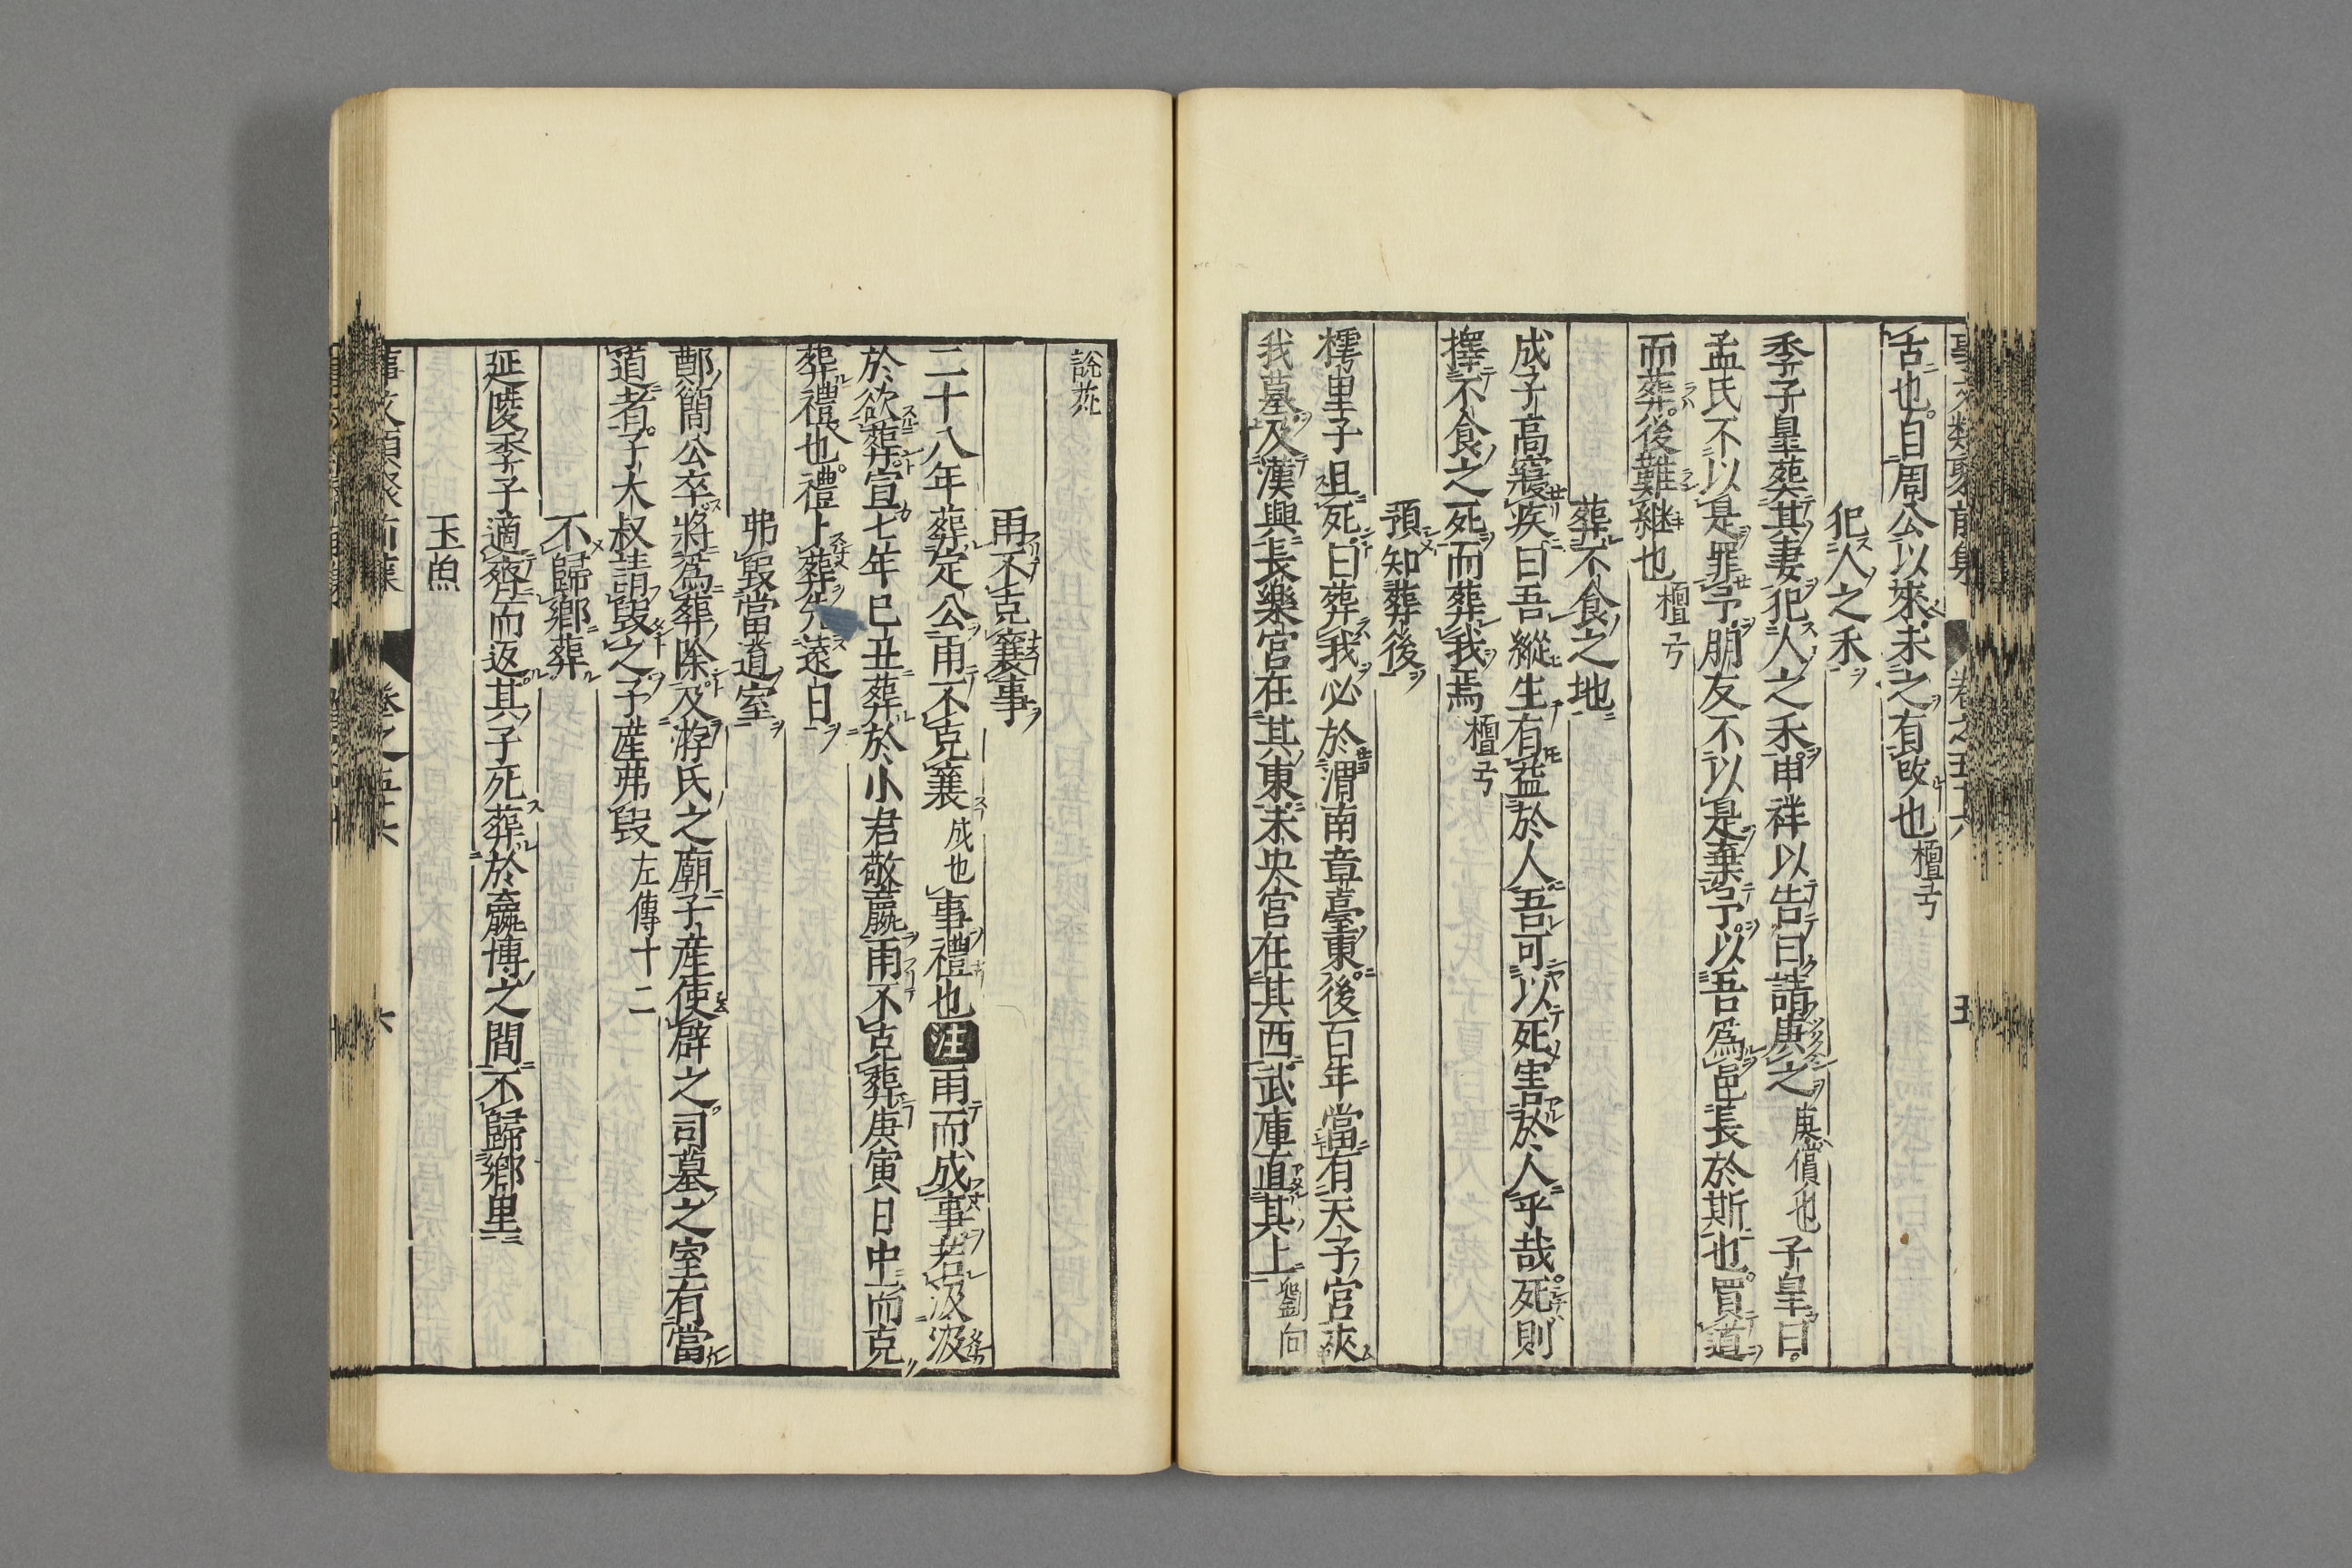 事文類聚前集 卷之五十六 五
舌也自周公以來未之有改也檀弓
犯人之禾
季子皐葬其妻犯人之禾申祥以告曰請庚之庚償也子皐曰
孟氏不以是罪予朋友不以是棄予以吾爲邑長於斯也買道
而葬後難継也檀弓
葬不食之地
成子高寢疾曰吾縱生有益於人吾可以死害於人乎哉死則
擇不食之死而葬我焉檀弓
預知葬後
樗里子且死曰葬我必於渭南章臺東後百年當有天子宮夾
我墓及漢興長樂宮在其東未央宮在其西武庫直其上劉向
說苑
雨不克襄事
二十八年葬定公雨不克襄成也事禮也注雨而成事若汲汲
於欲葬宣七年巳丑葬於小君敬嬴雨不克葬庚寅日中而克
葬禮也禮卜葬先遠日
弗毀當道室
鄭簡公卒將爲葬除及游氏之廟子產使辟之司墓之室有當
道者子大叔請毀之子產弗毀左傳十二
不歸鄉葬
延陵季子適齊而返其子死葬於嬴博之間不歸鄉里
玉魚
事文類聚前集 卷之五十六 六